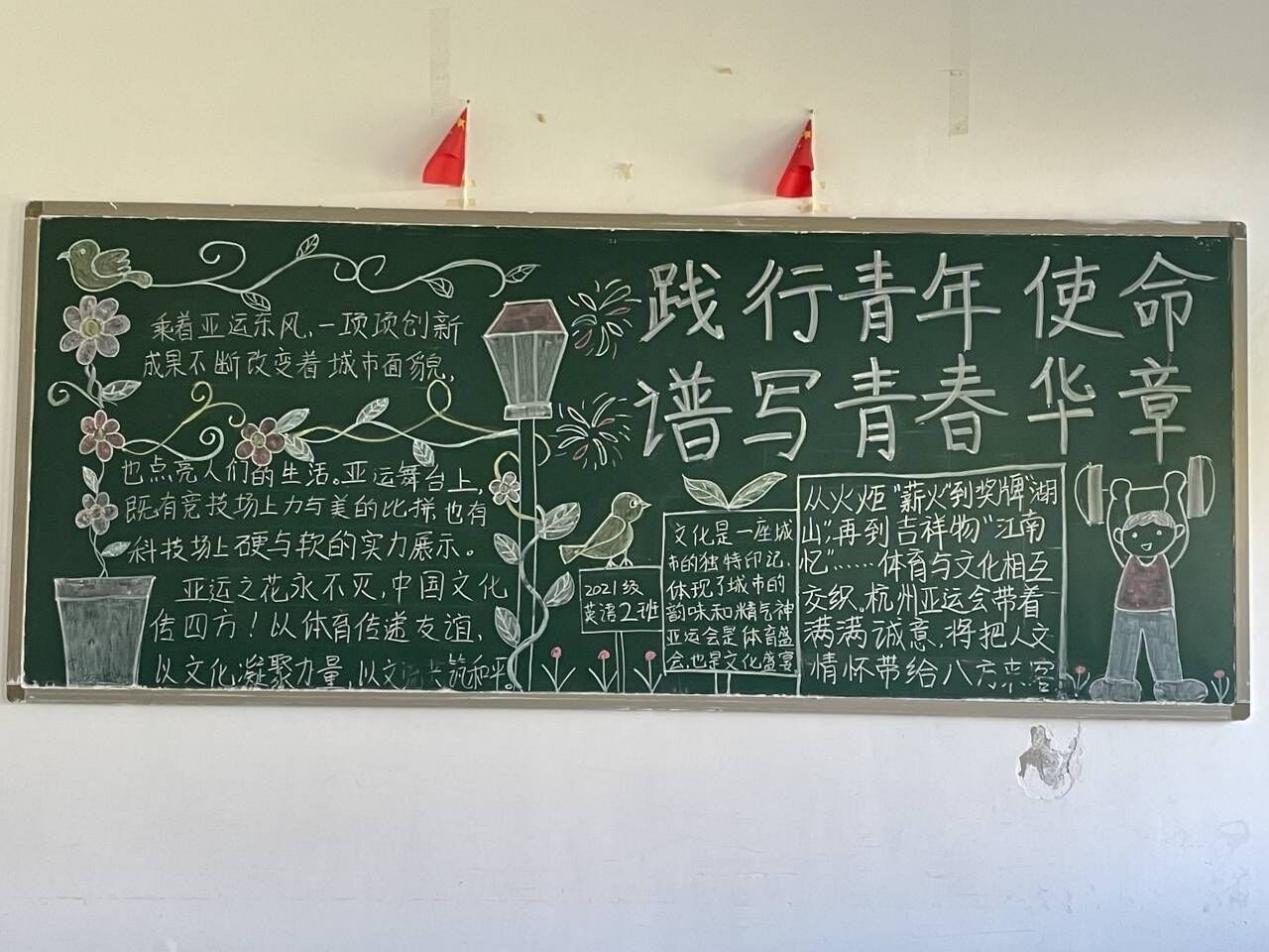 践行青年使命
谱写青春华章
乘着亚运东风,一项项创新
成果不断改变着城市面貌,
也点亮人们的生活。亚运舞台上,
既有竞技场上力与美的比拼,也有
科技场上硬与软的实力展示。
亚运之花永不灭,中国文化
传四方!以体育传递友谊、
以文化凝聚力量,以文 共筑和平。
2021级
英语2班
文化是一座城
市的独特印记,
体现了城市的
韵味和精气神
亚运会是体育盛
会,也是文化盛宴
从火炬“薪火”到奖牌“湖
山”,再到吉祥物“江南
忆”……体育与文化相互
交织。杭州亚运会带着
满满诚意,将把人文
情怀带给八方来客